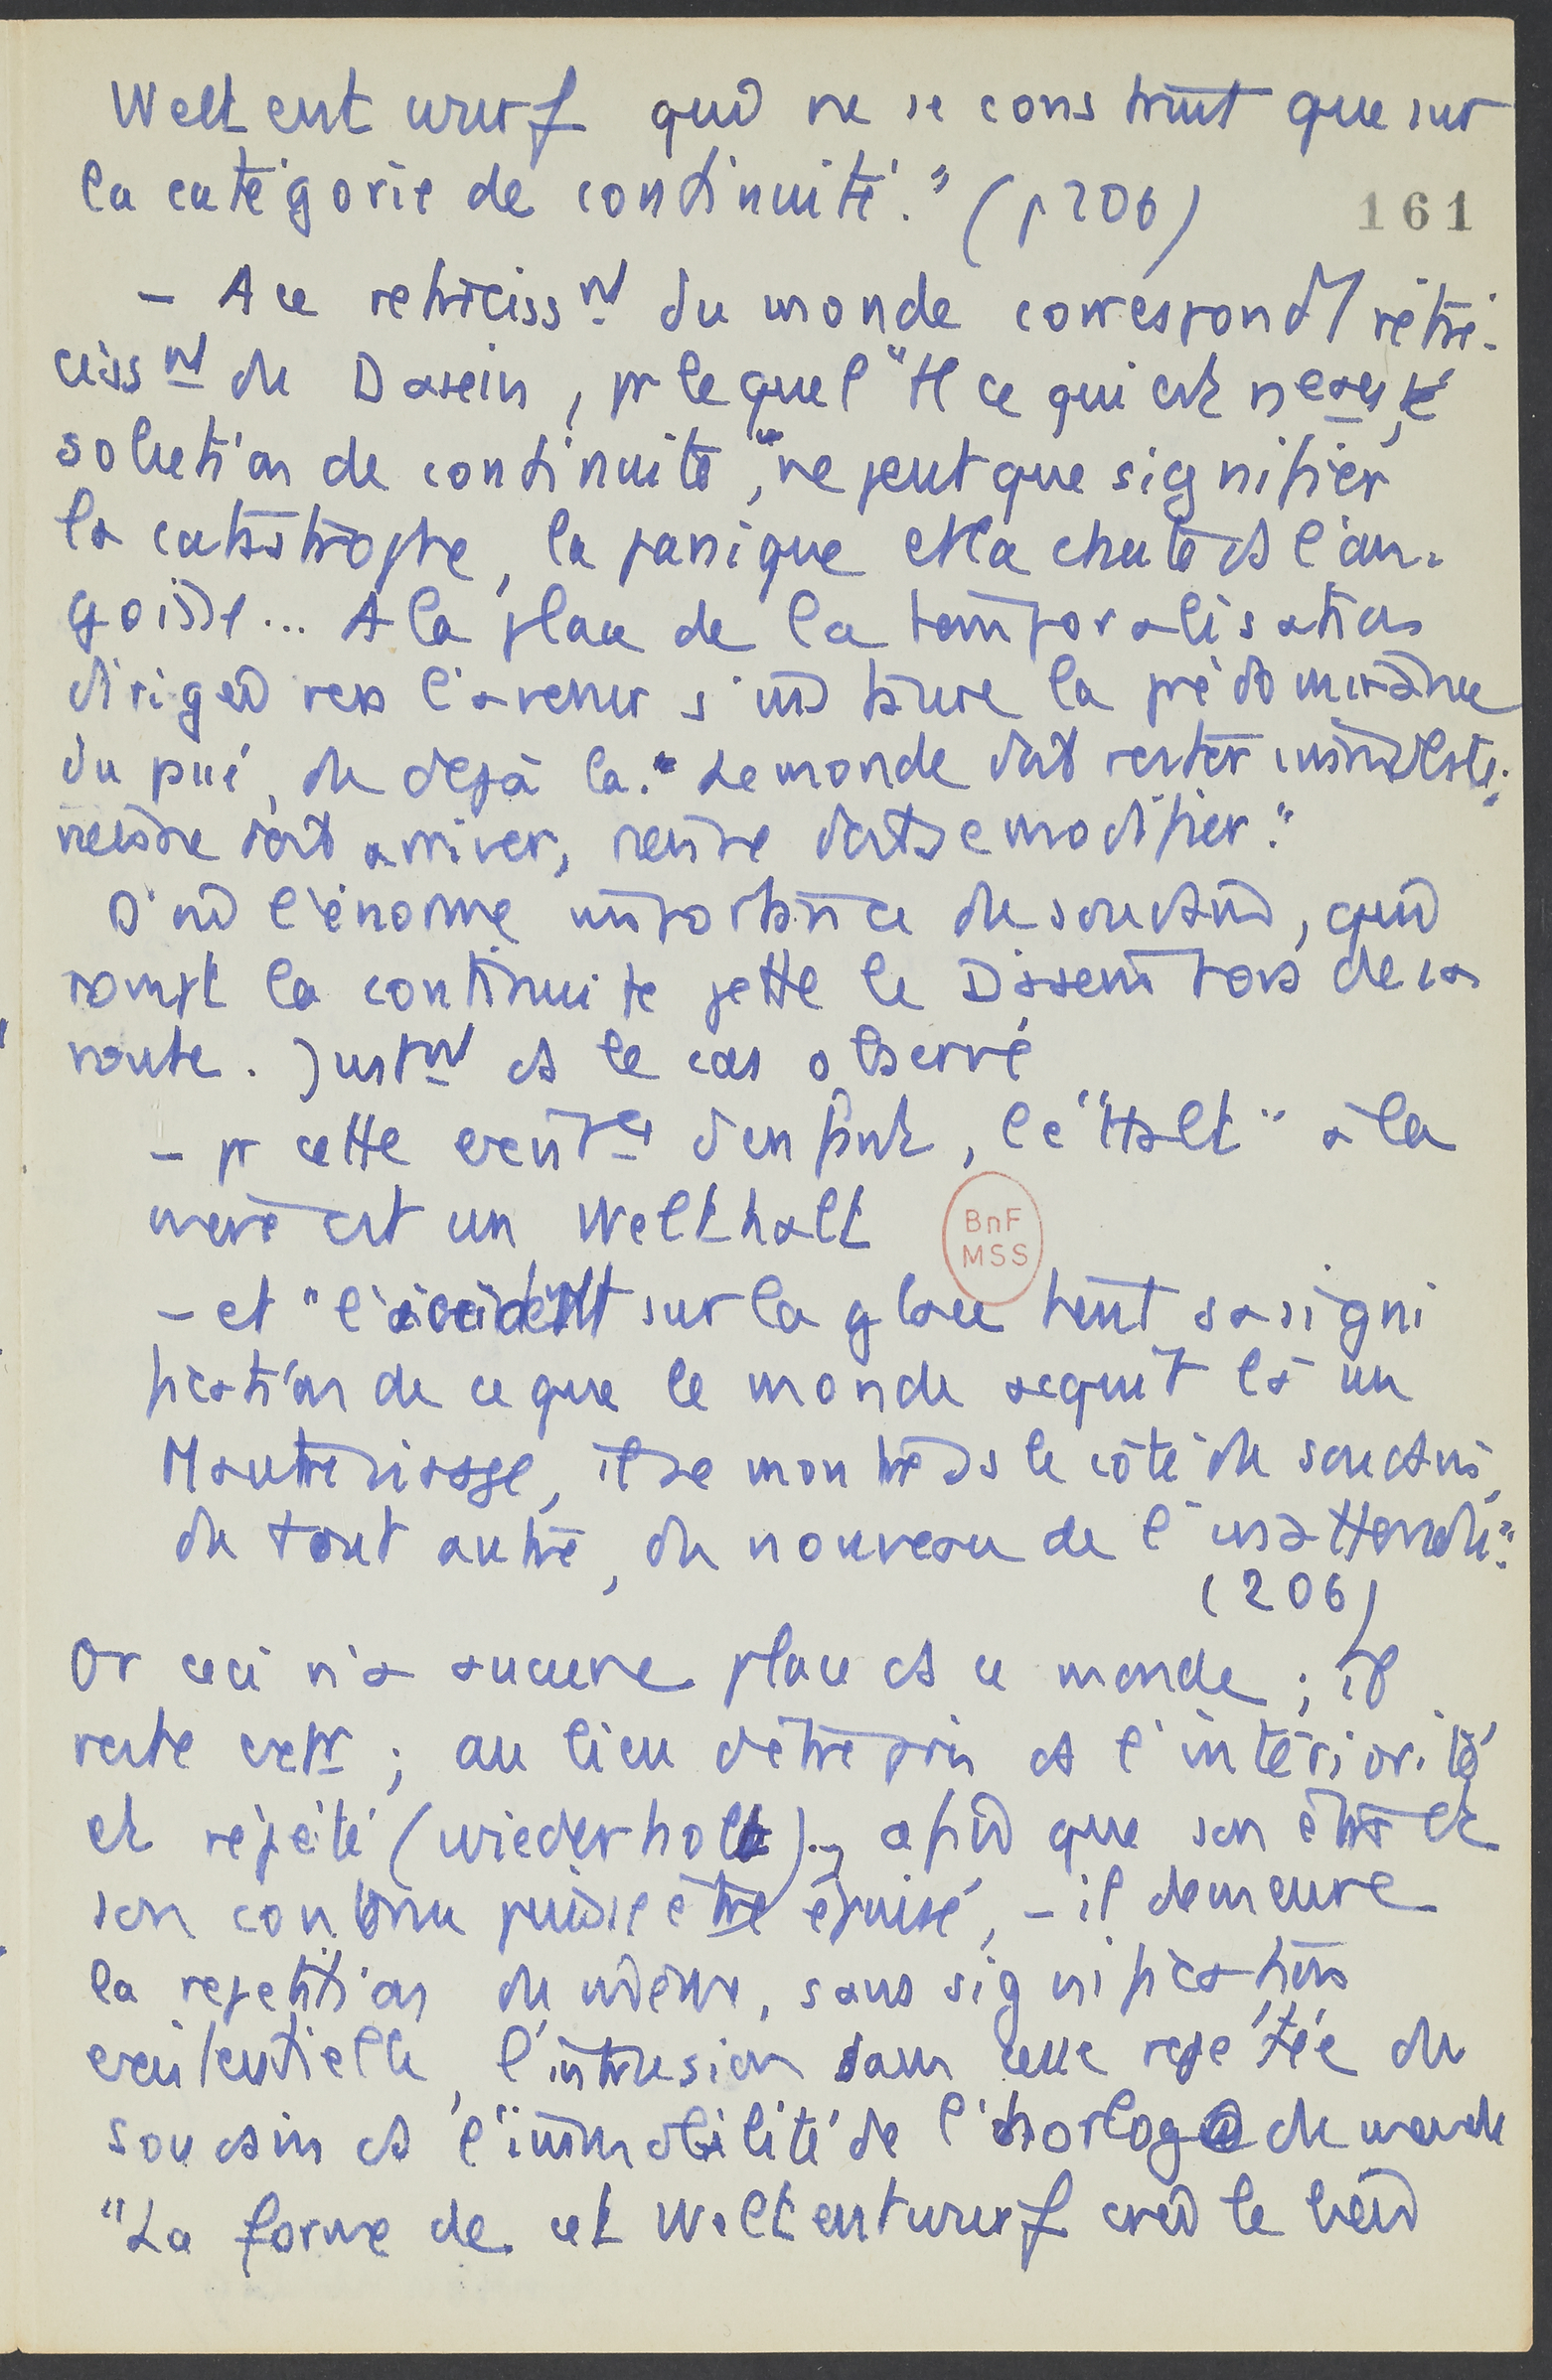 Weltentwurf qui ne se construit que sur
la catégorie de continuité." (p 206)
161
- A ce retreciss^nt du monde correspond 1 rétré-
ciss^nt du Dasein, pr lequel "tt ce qui est
solution de continuité", ne peut que signifier
la catastrophe, la panique et la chute ds l'an-
goisse... A la place de la temporalisation
dirigée vers l'avenir s'instaure la prédominance
du passé, du dejà la. "Le monde doit rester
rien ne doit arriver, rien ne doit se modifier."
D'où l'énorme importance du soudain, qui
rompt la continuité jette le Dasein hors de sa
route. Just^nt ds le cas observé
- pr cette d'enfant, le "Halt" à la
mère est un Welthalt
BnF
MSS
- et "l'accident sur la glace tient sa signi
fication de ce que le monde acquiert là un
il se montre ds le côté du soudain,
du tout autre, du nouveau de l'inattendu".
(206)
Or ceci n'a aucune place ds ce monde ; il
reste ext^r ; au lieu d'être pris ds l'intériorité
et répété (wiederholt), afin que son être et
son contenu puisse être épuisé, - il demeure
la repetition du même, sans signification
existentielle, l'intrusion sans cesse repétée du
soudain ds l'immobilité de l'horloge du monde
"La forme de cet Weltentwurf